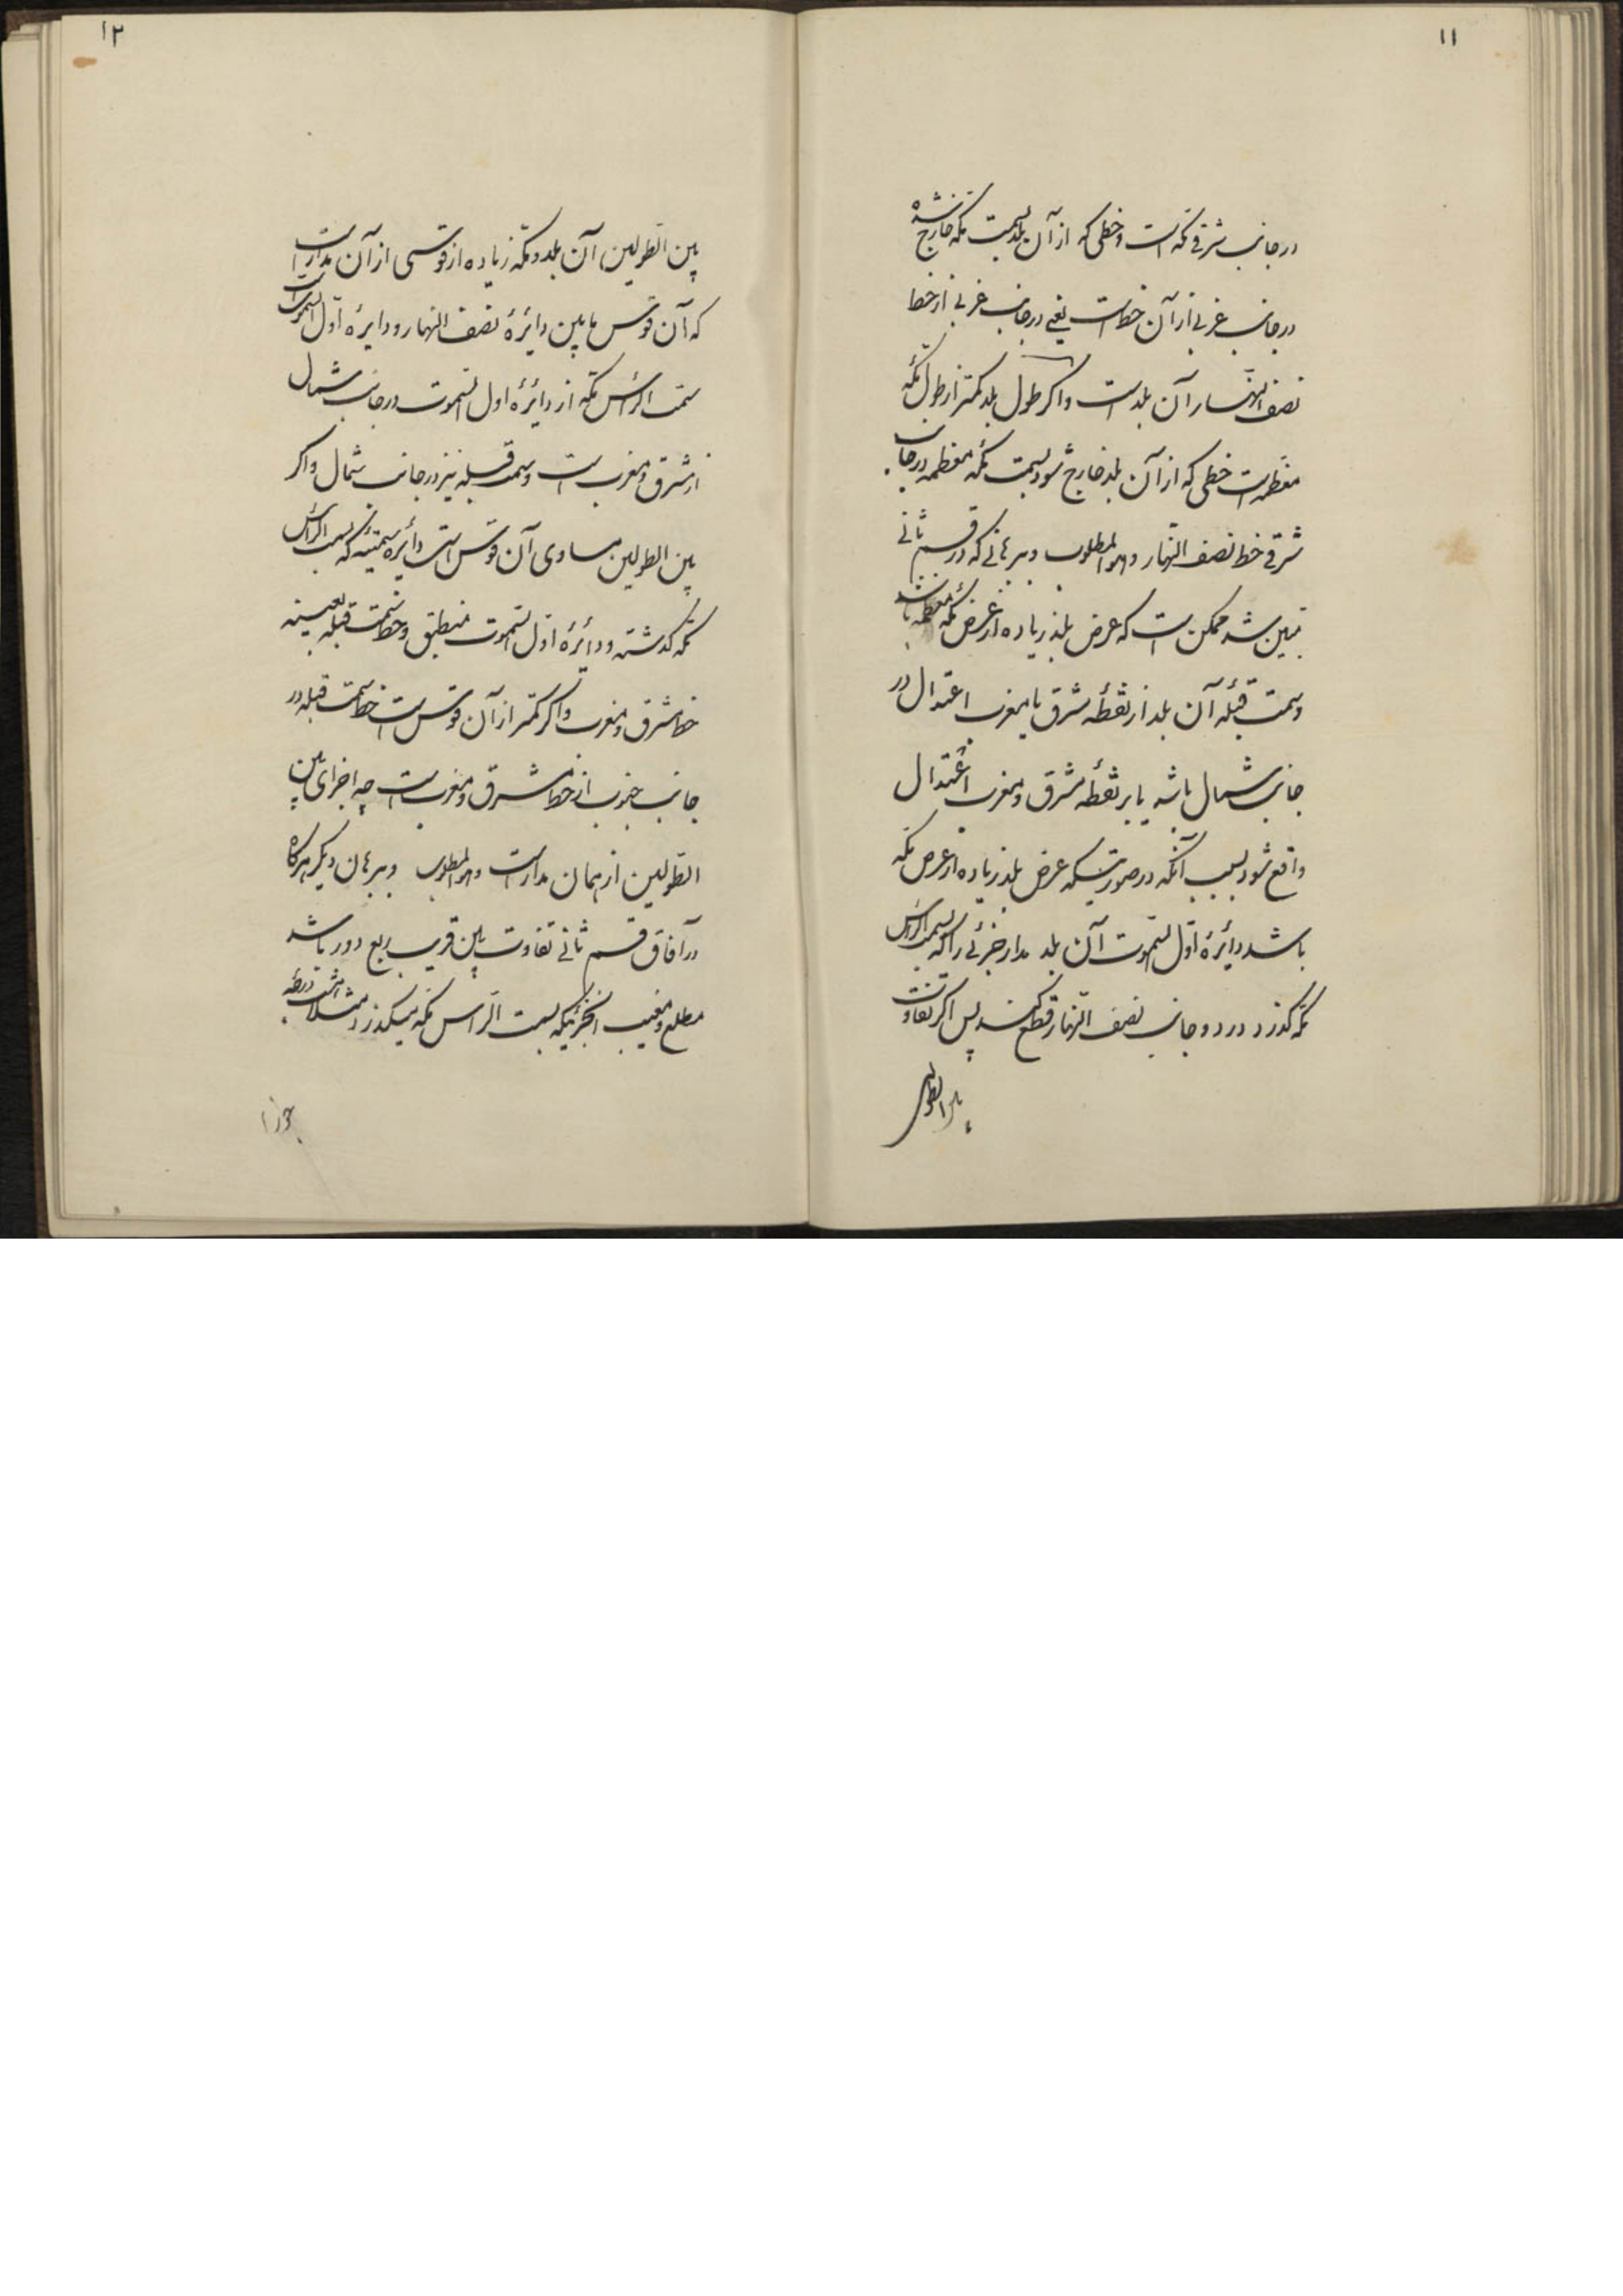 ۱۱
در جانب شرقی مکه است و خطی که از آن بلد بسمت مکه خارج شده
در جانب غربی از آن خط است یعنی در جانب غربی از خط
نصف النهار آن بلد است و اگر طول بلد کمتر از طول مکه
معظمه است خطی که از آن بلد خارج شود بسمت مکه معظمه در جانب
شرقی خط نصف النهار و هو المطلوب و برهانی که در قسم ثانی
مبین شد ممکن است که عرض بلد زیاده از عرض مکه معظمه باشد
و سمت قبله آن بلد از نقطه مشرق یا مغرب اعتدال در
جانب شمال باشد یا بر نقطه مشرق و مغرب اعتدال
واقع شود بسبب آنکه در صورتیکه عرض بلد زیاده از عرض مکه
باشد دایره اول السموت آن بلد مدار جزئی را که بسمت الرأس
مکه گذرد در دو جانب نصف النهار قطع کند پس اگر تفاوت
بین الطولین
۱۲
بین الطولین آن بلد و مکه زیاده از قوسی از آن مدار است
که آن قوس مابین دایرهٔ نصف النهار و دایرهٔ اول السموت است
سمت الرأس مکه از دایرهٔ اول السموت در جانب شمال
از مشرق و مغرب است و سمت قبله نیز در جانب شمال و اگر
بین الطولین مساوی آن قوس است دایره سمتیه که بسمت الرأس
مکه گذشته و دایرهٔ اول السموت منطبق و خط سمت قبله بعینه
خط مشرق و مغرب و اگر کمتر از آن قوس است خط سمت قبله در
جانب جنوب از خط مشرق و مغرب است چه اجزای بین
الطولین از همان مدار است و هو المطلوب و برهان دیگر هرگاه
در آفاق قسم ثانی تفاوت بین قریب بربع دور باشد
مطلع و مغیب آنجزئیکه بسمت الرأس مکه میگذرد مثلا هشت درجه
جوزا